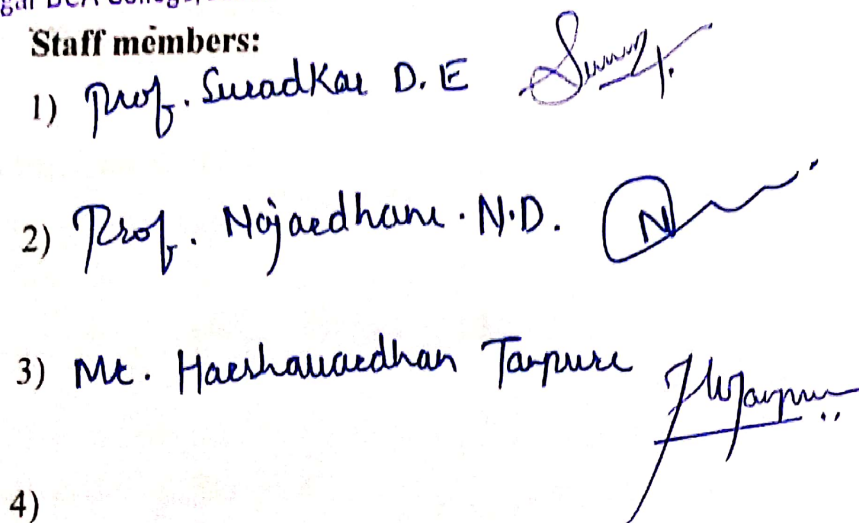 gar BCA College,
Staff members:
1) Prof. Suradkar D. E
2) Prof. Najardhane . N.D.
3) Mr. Harshavardhan Tarpure
4)